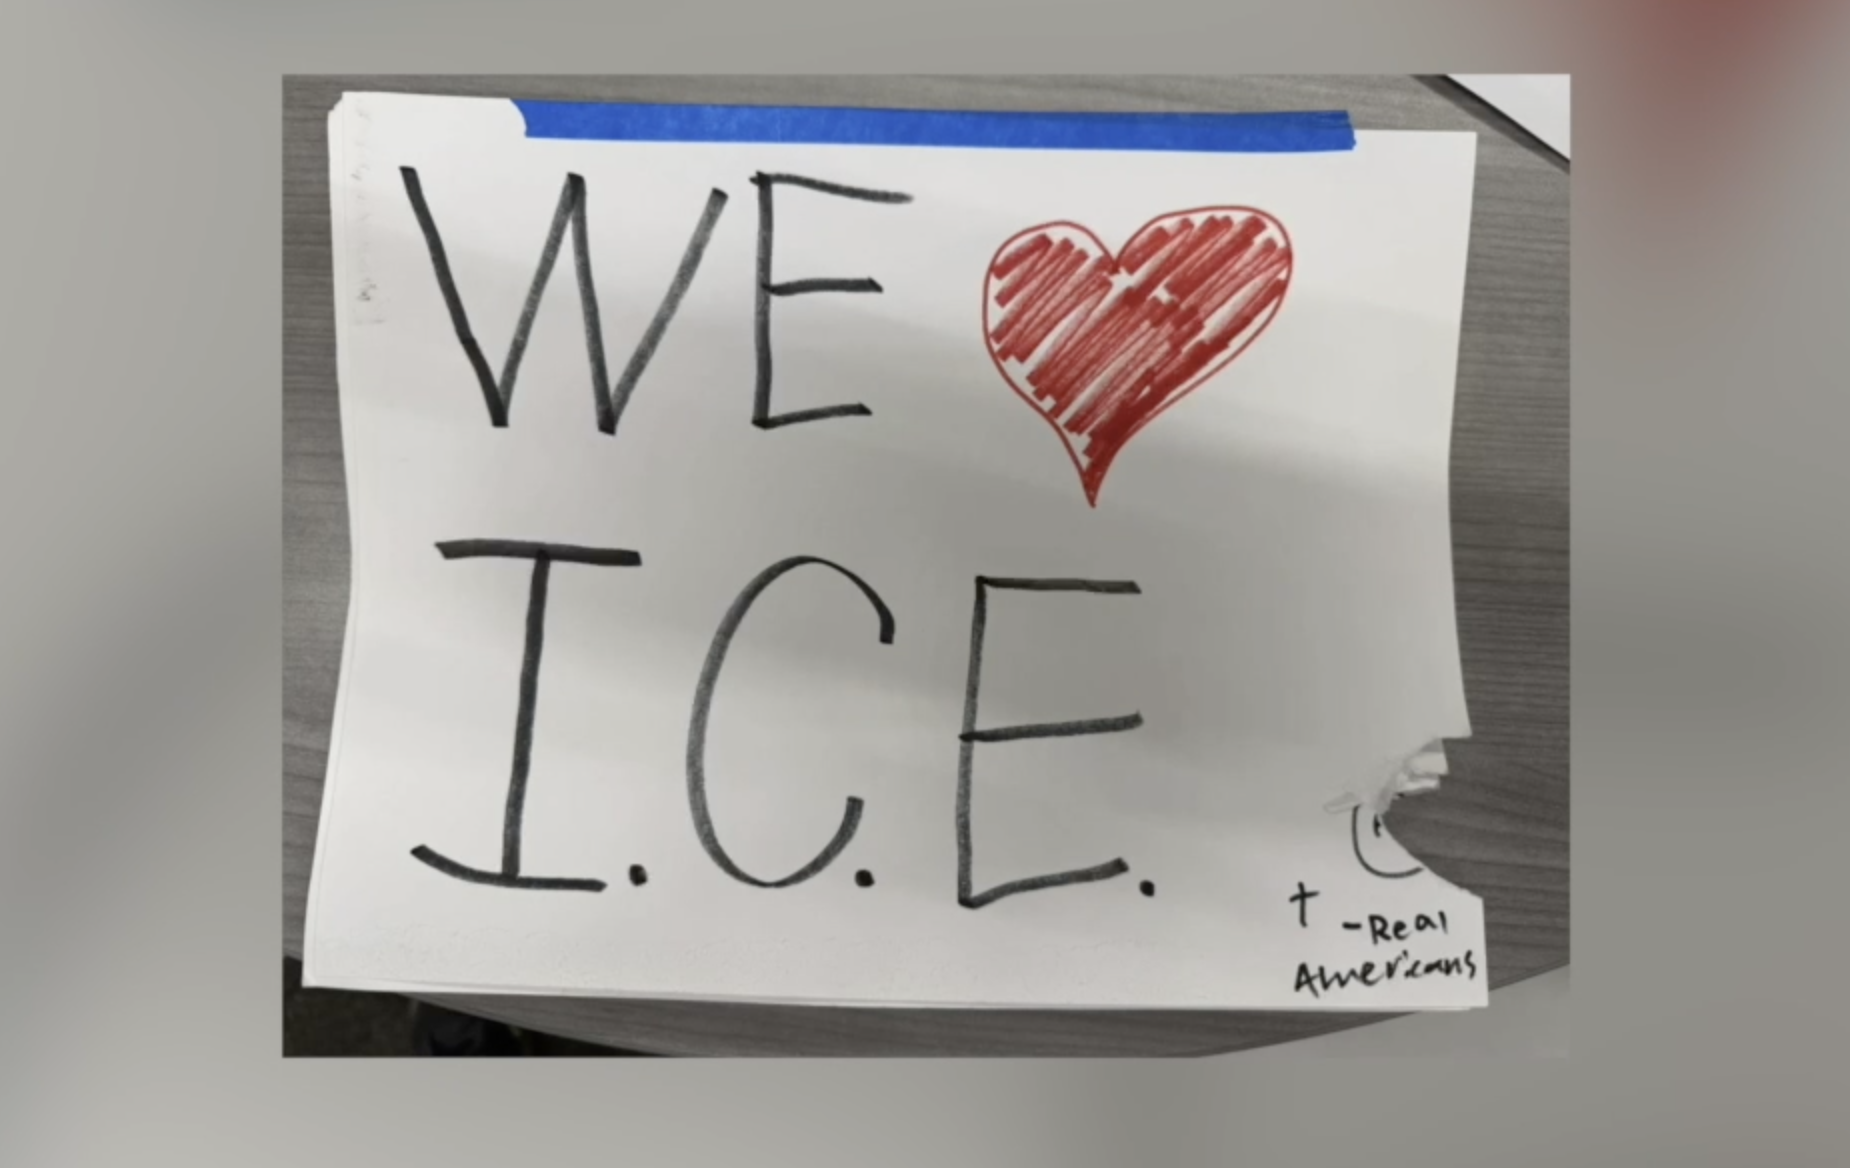 WE ❤
I.C.E.
-Real
Americans